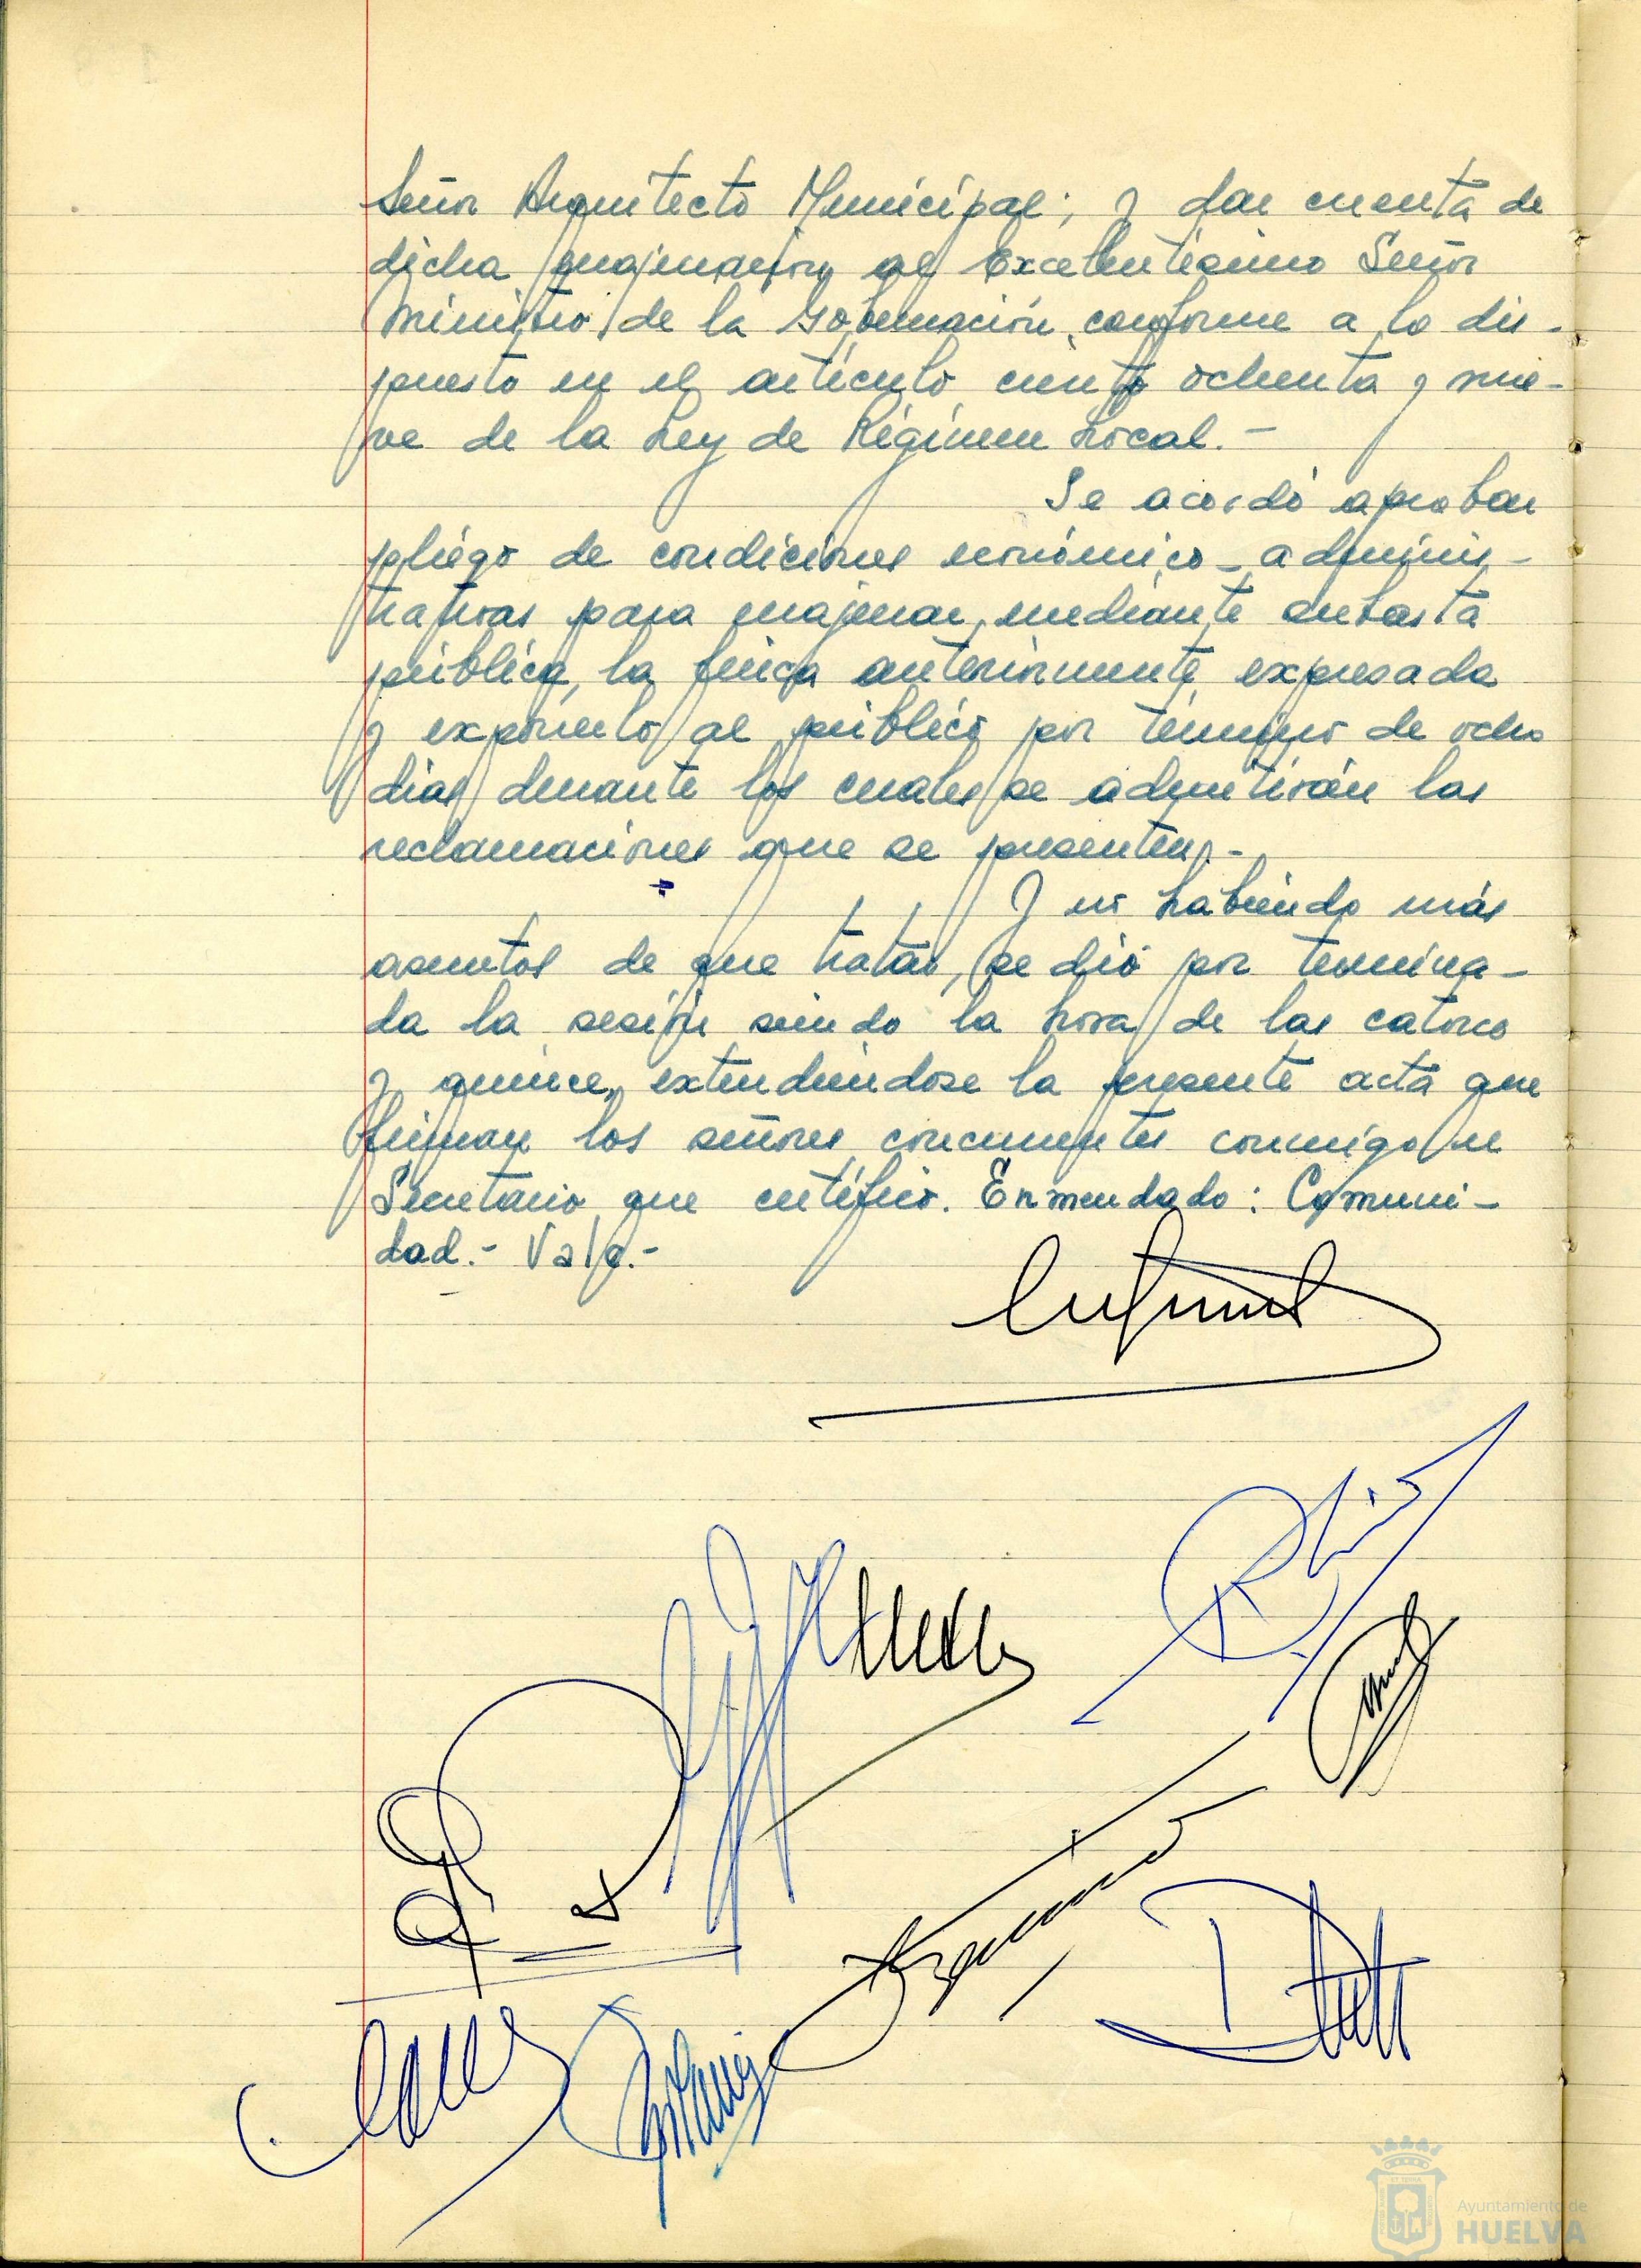 Señor Arquitecto Municipal; y dar cuenta de
dicha enajenación al Excelentísimo Señor
Ministro de la Gobernación conforme a lo dis-
puesto en el artículo ciento ochenta y nue-
ve de la Ley de Régimen Local.-
Se acordó aprobar
pliego de condiciones económico-adminis-
trativas para enajenar, mediante subasta
pública, la finca anteriormente expresada
y exponerlo al público por término de ocho
días durante los cuales se admitirán las
reclamaciones que se presenten.-
Y no habiendo más
asuntos de que tratar, se dió por termina-
da la sesión siendo la hora de las catorce
y quince, extendiéndose la presente acta que
firman los señores concurrentes conmigo el
Secretario que certifico. Enmendado: Comuni-
dad.- Vale.-
Ayuntamiento de
HUELVA